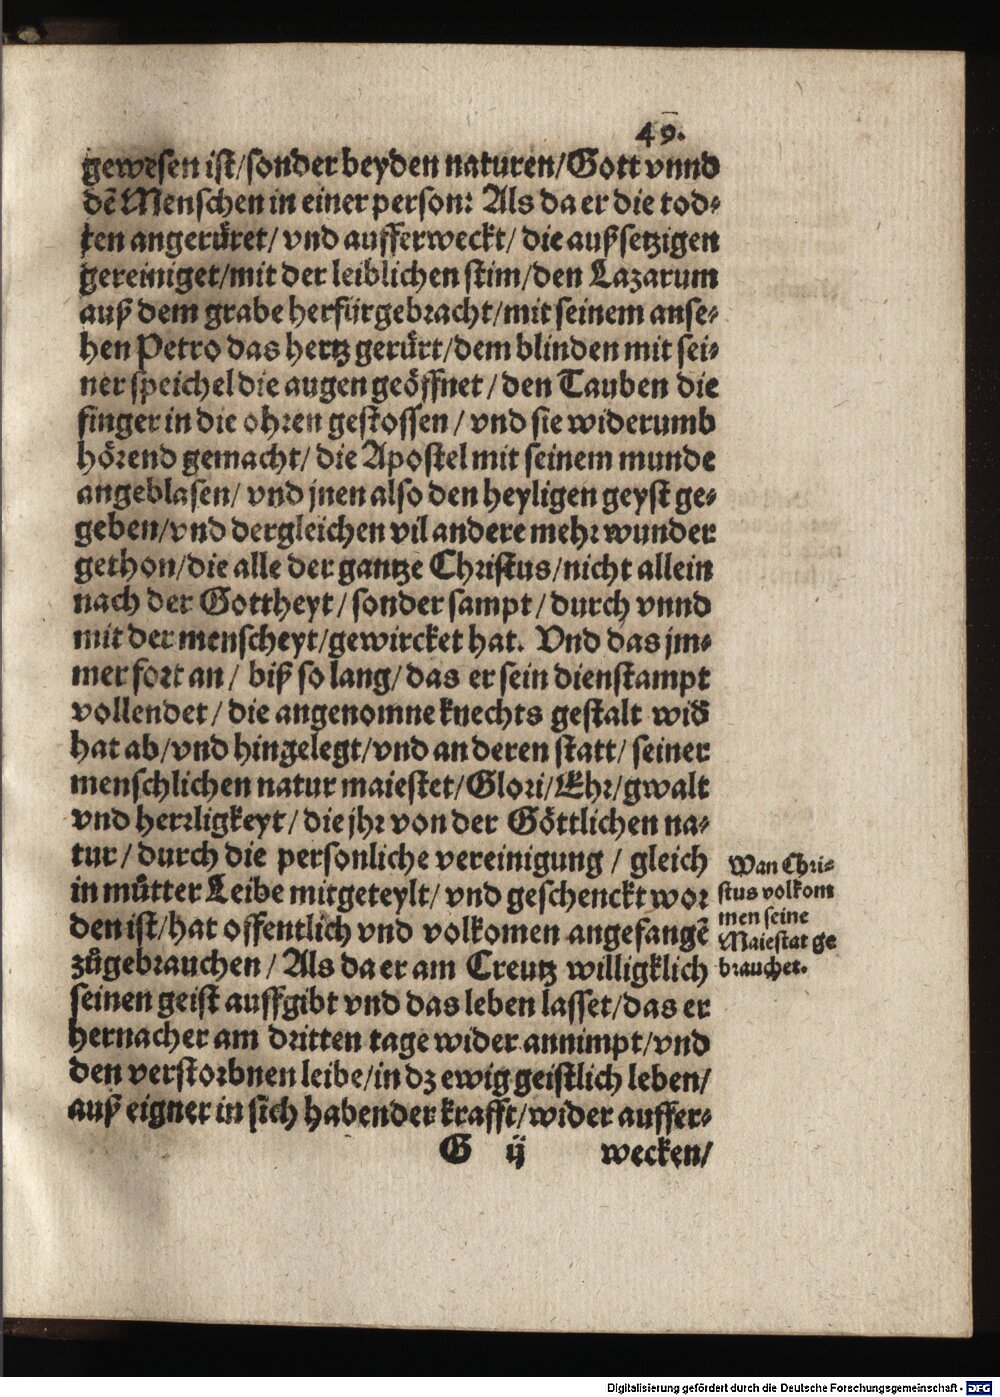 49.
gewesen ist/sonder beyden naturen/Gott vnnd
dē Menschen in einer person: Als da er die tod-
ten angerüret/ vnd aufferweckt/ die außsetzigen
gereiniget/mit der leiblichen stim/den Lazarum
auß dem grabe herfürgebracht/mit seinem anse-
hen Petro das hertz gerürt/dem blinden mit sei-
ner speichel die augen geöffnet/den Tauben die
finger in die ohren gestossen/ vnd sie widerumb
hörend gemacht/ die Apostel mit seinem munde
angeblasen/ vnd jnen also den heyligen geyst ge-
geben/vnd dergleichen vil andere mehr wunder
gethon/die alle der gantze Christus/nicht allein
nach der Gottheyt/ sonder sampt/ durch vnnd
mit der menscheyt/gewircket hat. Vnd das jm-
mer fort an/ biß so lang/ das er sein dienstampt
vollendet/ die angenomne knechts gestalt wid
hat ab/vnd hingelegt/vnd an deren statt/ seiner
menschlichen natur maiestet/Glori/Ehr/gwalt
vnd herrligkeyt/ die jhr von der Göttlichen na-
tur/ durch die personliche vereinigung/ gleich
in můtter Leibe mitgeteylt/ vnd geschenckt wor
den ist/hat offentlich vnd volkomen angefangē
zůgebrauchen/ Als da er am Creutz willigklich
seinen geist auffgibt vnd das leben lasset/das er
hernacher am dritten tage wider annimpt/vnd
den verstorbnen leibe/in dz ewig geistlich leben/
auß eigner in sich habender krafft/wider auffer-
G ij wecken/
Wan Chri-
stus volkom
men seine
Maiestat ge
brauchet.
Digitalisierung gefördert durch die Deutsche Forschungsgemeinschaft - DFG